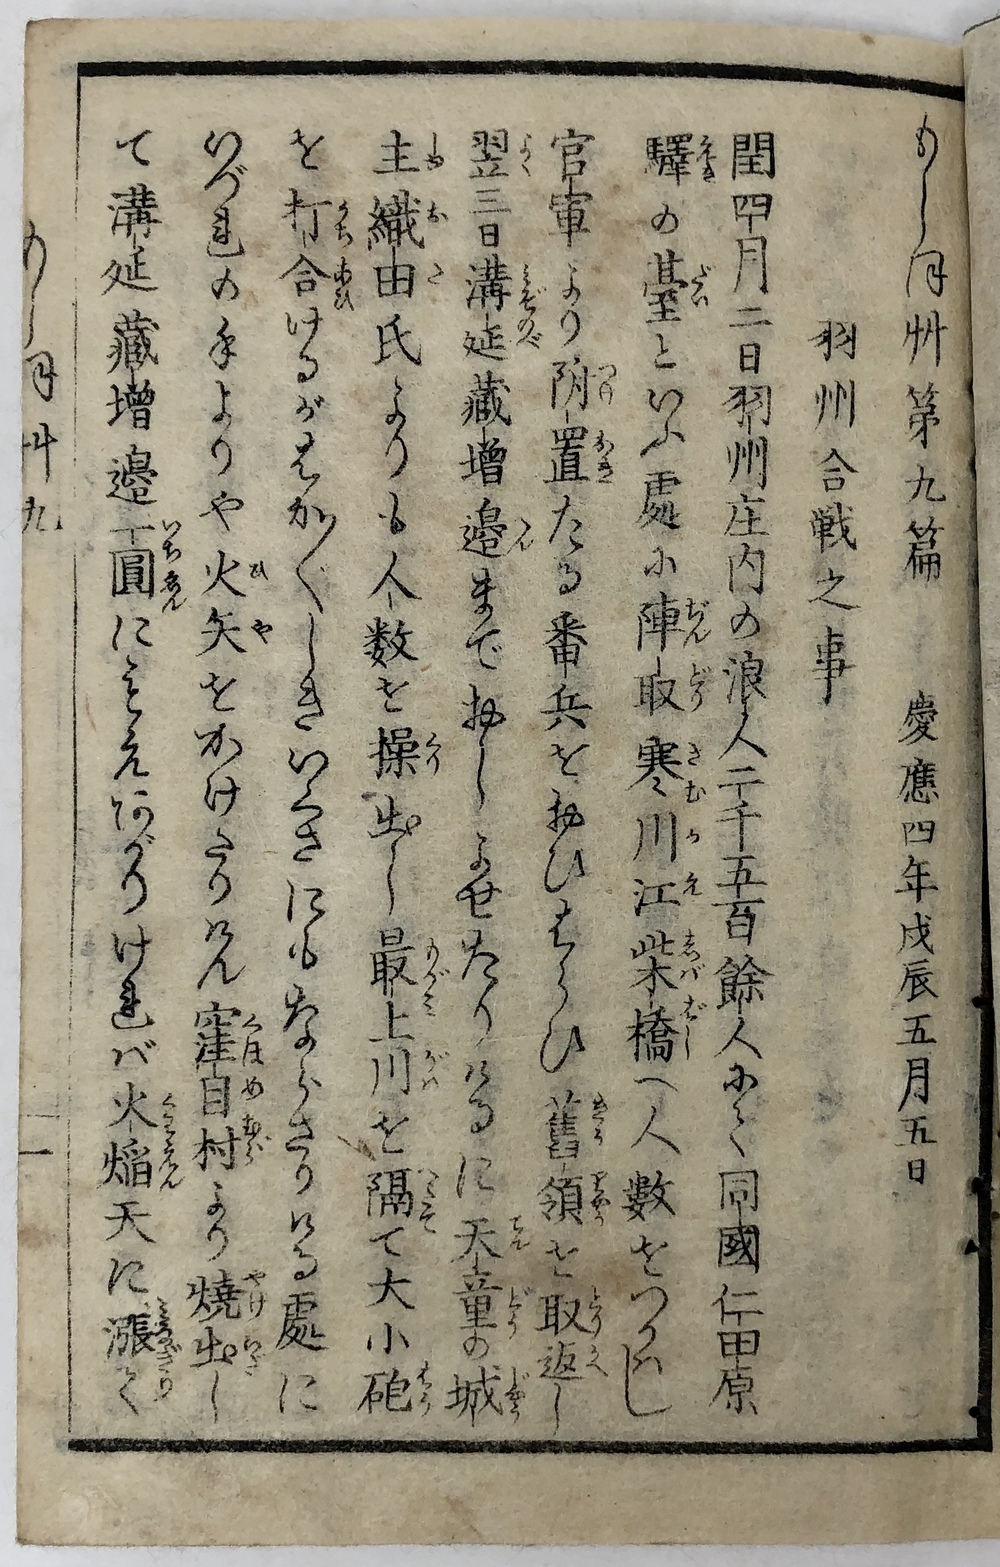 もしほ艸第九篇　慶應四年戊辰五月五日
羽州合戦之事
閏四月二日羽州庄内の浪人二千五百餘人にて同國仁田原
驛の臺といふ處に陣取寒川江柴橋へ人数をつかハし
官軍より附置たる番兵をおひはらひ舊領を取返し
翌三日溝延蔵増邉までおしよせたりけるに天童の城
主織田氏よりも人数を操出し最上川を隔て大小砲
を打合けるがはか〲しきいくさにもならざりける處に
いづれの手よりや火矢をかけたりけん窪目村より燒出し
て溝延蔵増邉一圓にもえあがりけれバ火焔天に漲て
もしほ艸九
一